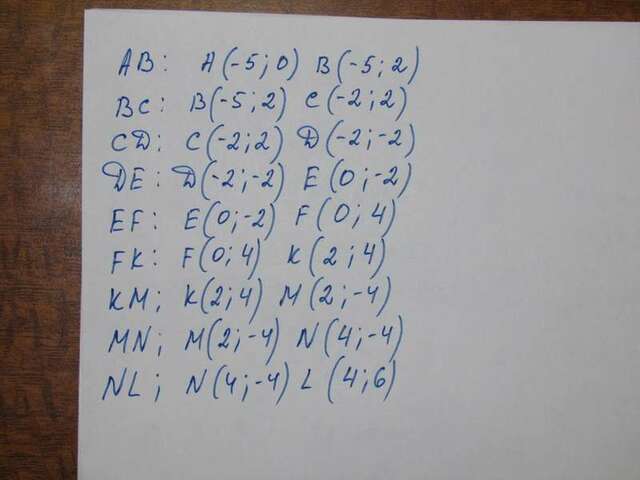 AB: A(-5;0) B(-5;2)
BC: B(-5;2) C(-2;2)
CD: C(-2;2) D(-2;-2)
DE: D(-2;-2) E(0;-2)
EF: E(0;-2) F(0;4)
FK: F(0;4) K(2;4)
KM; K(2;4) M(2;-4)
MN; M(2;-4) N(4;-4)
NL; N(4;-4) L(4;6)